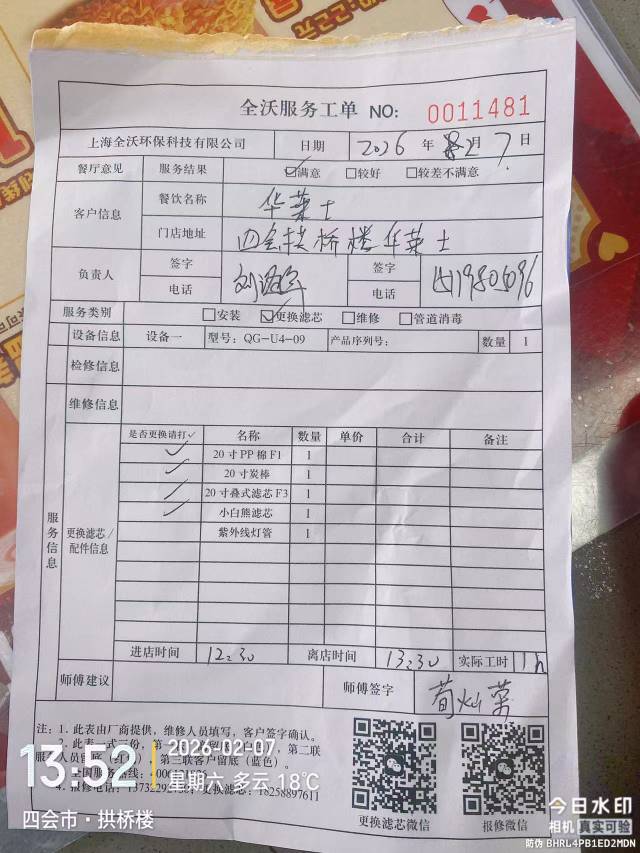 全沃服务工单 NO: 0011481
上海全沃环保科技有限公司 日期 2026 年 2月 7 日
餐厅意见 服务结果 ☑满意 □较好 □较差不满意
客户信息 餐饮名称 华莱士
门店地址 四会拱桥楼华莱士
负责人 签字 签字
电话 电话
服务类别 □安装 ☑更换滤芯 □维修 □管道消毒
设备信息 设备一 型号: QG-U4-09 产品序列号: 数量 1
检修信息
维修信息
服务信息
更换滤芯/配件信息
是否更换请打✓ 名称 数量 单价 合计 备注
✓ 20寸PP棉F1 1
✓ 20寸炭棒 1
✓ 20寸叠式滤芯F3 1
✓ 小白熊滤芯 1
紫外线灯管 1
进店时间 12:30 离店时间 13:30 实际工时 1h
师傅建议 师傅签字
注: 1. 此表由厂商提供, 维修人员填写, 客户签字确认。
第三联客户留底(蓝色)。
更换滤芯: 18258897611
更换滤芯微信 报修微信
13:52
2026-02-07
星期六 多云 18℃
四会市·拱桥楼
今日水印
相机 真实可验
防伪 BHRL4PB1ED2MDN